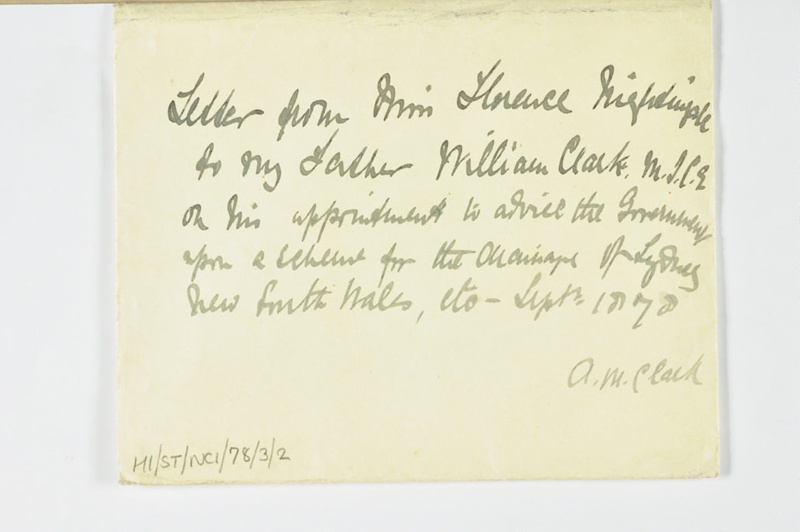 Letter from Miss Florence Nightingale
to my Father William Clark. M.I.C.E
on his appointment to advise the Government
upon a scheme for the drainage of Sydney
New South Wales, etc - Septr. 1878
A. M. Clark
H1/ST/NC1/78/3/2